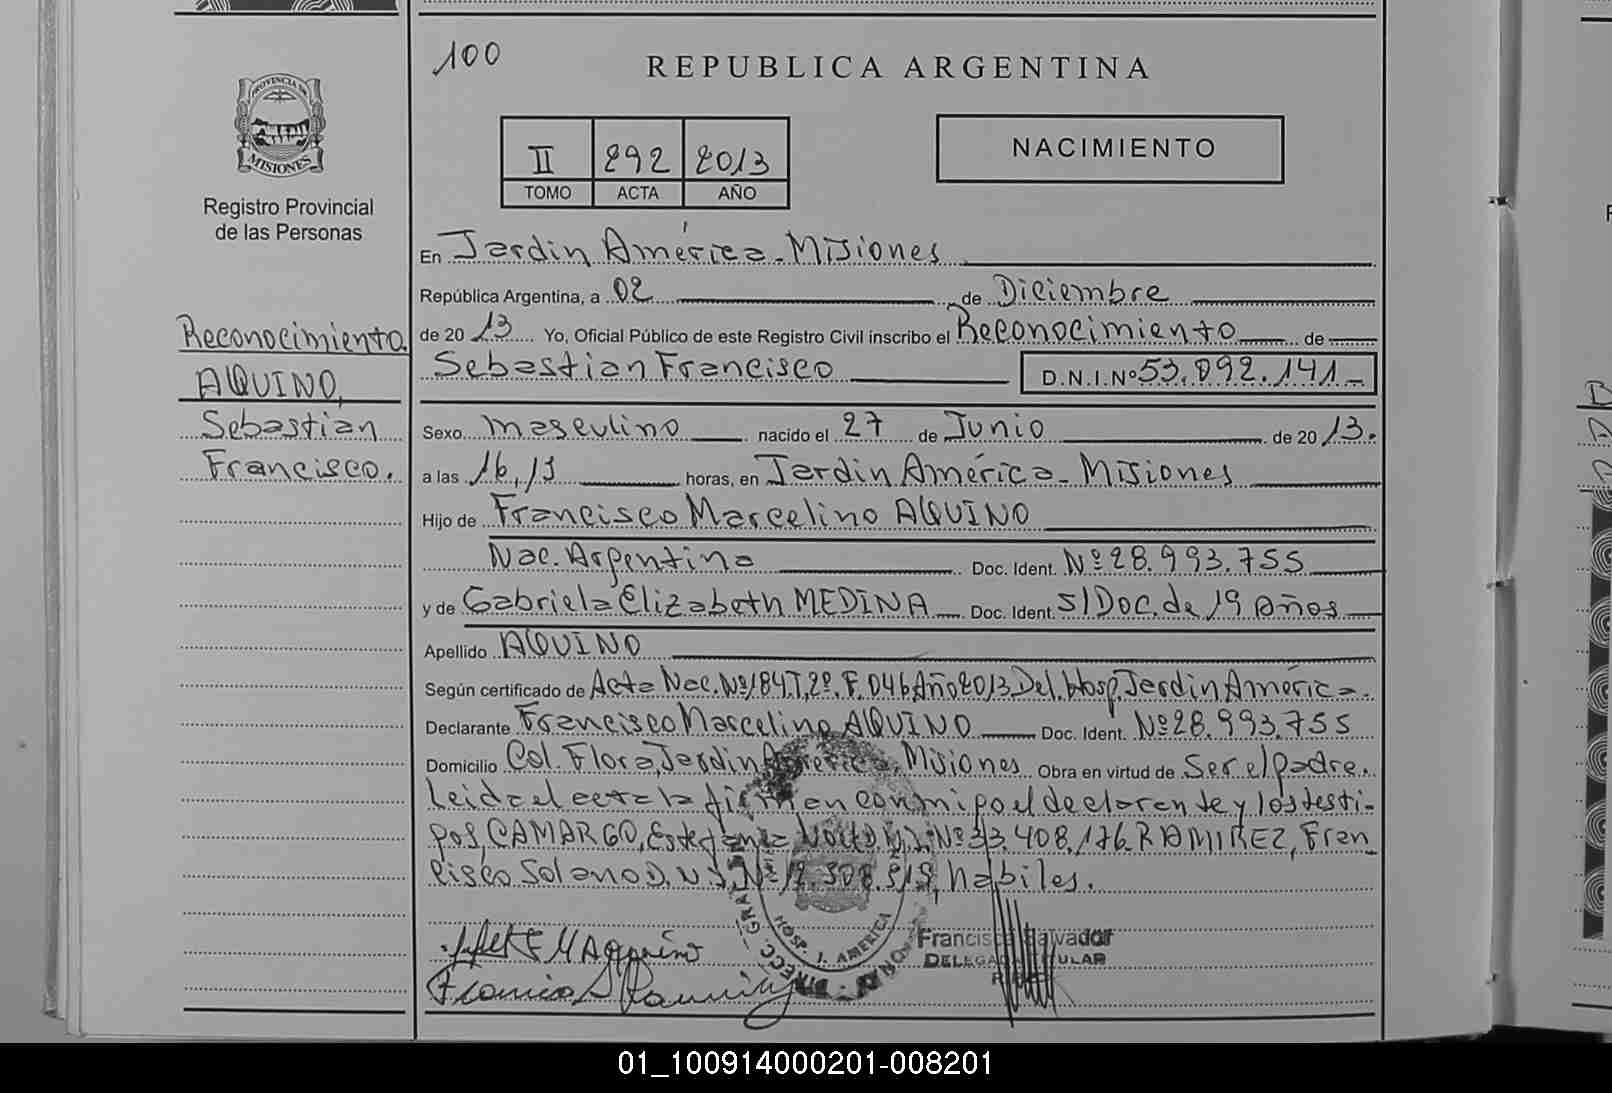 100
REPUBLICA ARGENTINA
PROVINCIA DE
MISIONES
Registro Provincial
de las Personas
II 292 2013
TOMO ACTA AÑO
NACIMIENTO
Reconocimiento.
AQUINO,
Sebastian
Francisco.
En Jardin América - Misiones
República Argentina, a 02 de Diciembre
de 2013 Yo, Oficial Público de este Registro Civil inscribo el Reconocimiento de
Sebastian Francisco D.N.I.Nº 53.092.141-
Sexo masculino nacido el 27 de Junio de 2013.
a las 16,13 horas, en Jardin América - Misiones
Hijo de Francisco Marcelino AQUINO
Nac. Argentina Doc. Ident. Nº 28.993.755
y de Gabriela Elizabeth MEDINA Doc. Ident. S/Doc. de 19 Años
Apellido AQUINO
Según certificado de Acta Nac. Nº 184.T,2º.F.046,Año 2013 Del Hosp. Jardin América.
Declarante Francisco Marcelino AQUINO Doc. Ident. Nº 28.993.755
Domicilio Col. Flora, Jardin América, Misiones Obra en virtud de Ser el padre.
Leida el acta la firman conmigo el declarante y los testi-
gos, CAMARGO, Nº 33.408.176. RAMIREZ, Fran
cisco Solano D.N.I. Nº habiles.
HOSP. J. AMERICA
Francisco Salvador
DELEGADO TITULAR
01_100914000201-008201